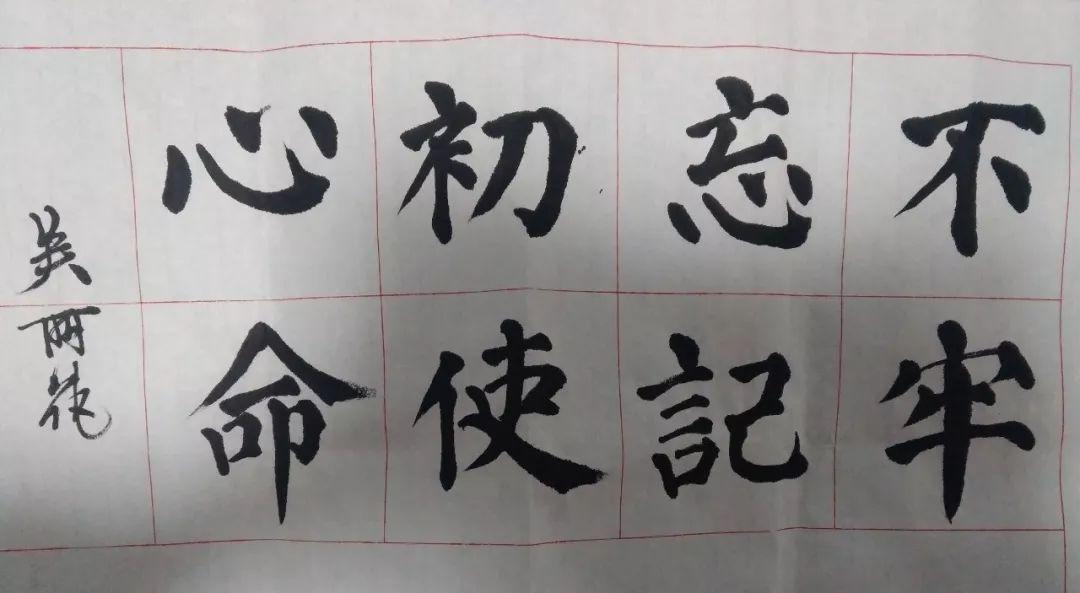 不忘初心
牢記使命
吴丽花